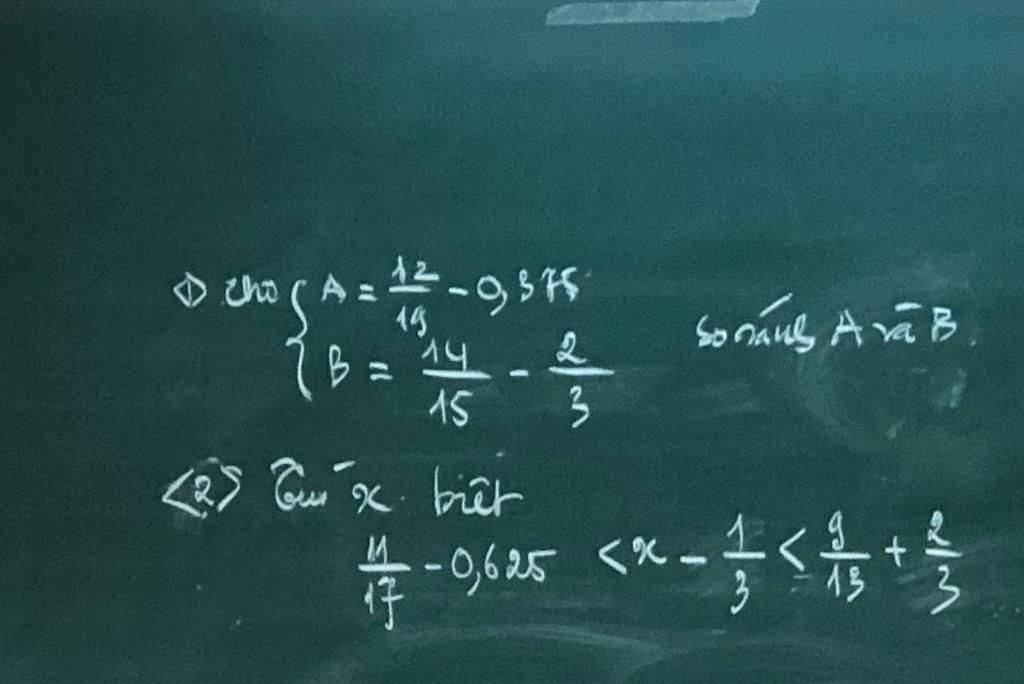 ① cho { A = 12/19 - 0,375
{ B = 14/15 - 2/3
So sánh A và B.
<2> Tìm x biết
11/17 - 0,625 < x - 1/3 < 9/13 + 2/3